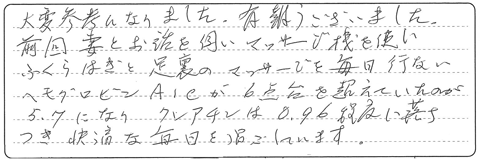 大変参考になりました。有難うございました。
前回妻とお話を伺いマッサージ機を使い
ふくらはぎと足裏のマッサージを毎日行ない
ヘモグロビンA1cが6点台を超えていたのが
5.7になり クレアチンは0.96程度に落ち
つき快適な毎日を過ごしています。